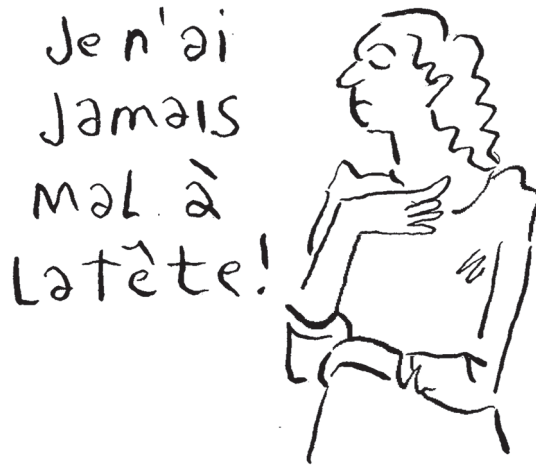 Je n'ai
Jamais
mal à
la tête!